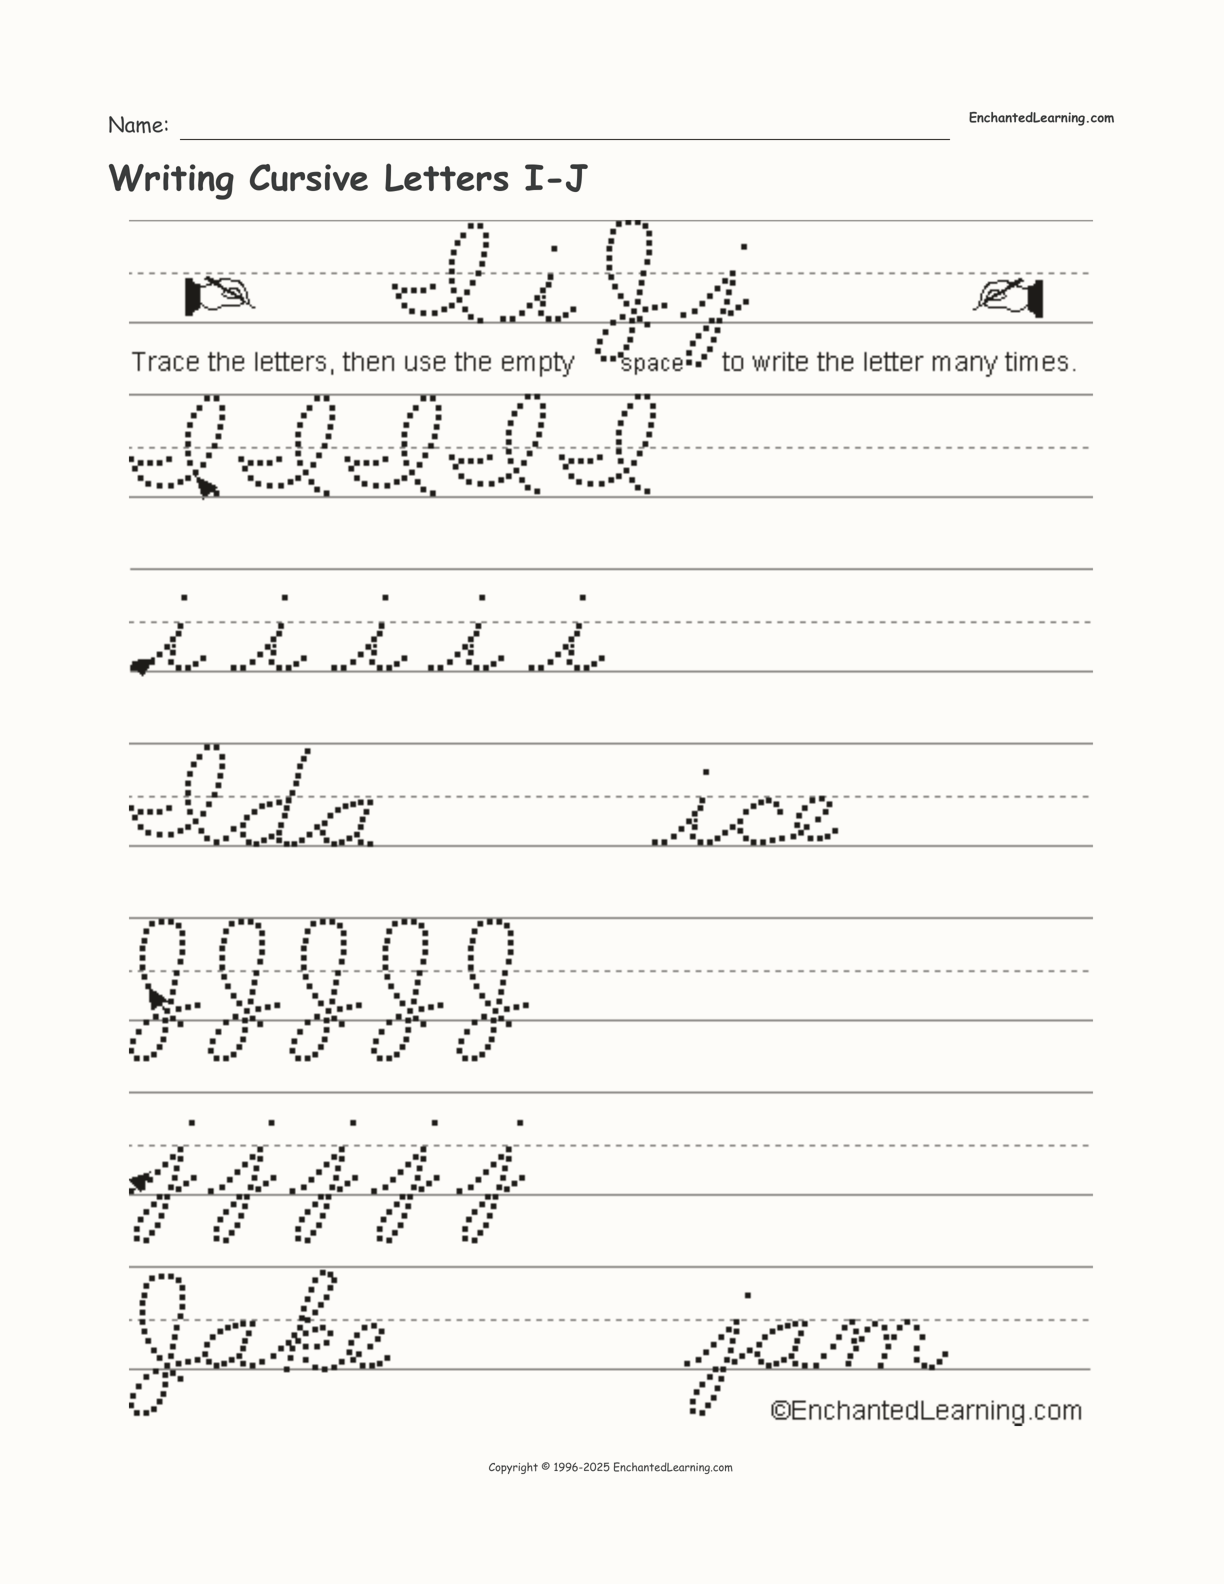 Name:
EnchantedLearning.com
Writing Cursive Letters I-J
I i J j
Trace the letters, then use the empty space to write the letter many times.
I I I I I
i i i i i
Ida ice
J J J J J
j j j j j
Jake jam
©EnchantedLearning.com
Copyright © 1996-2025 EnchantedLearning.com